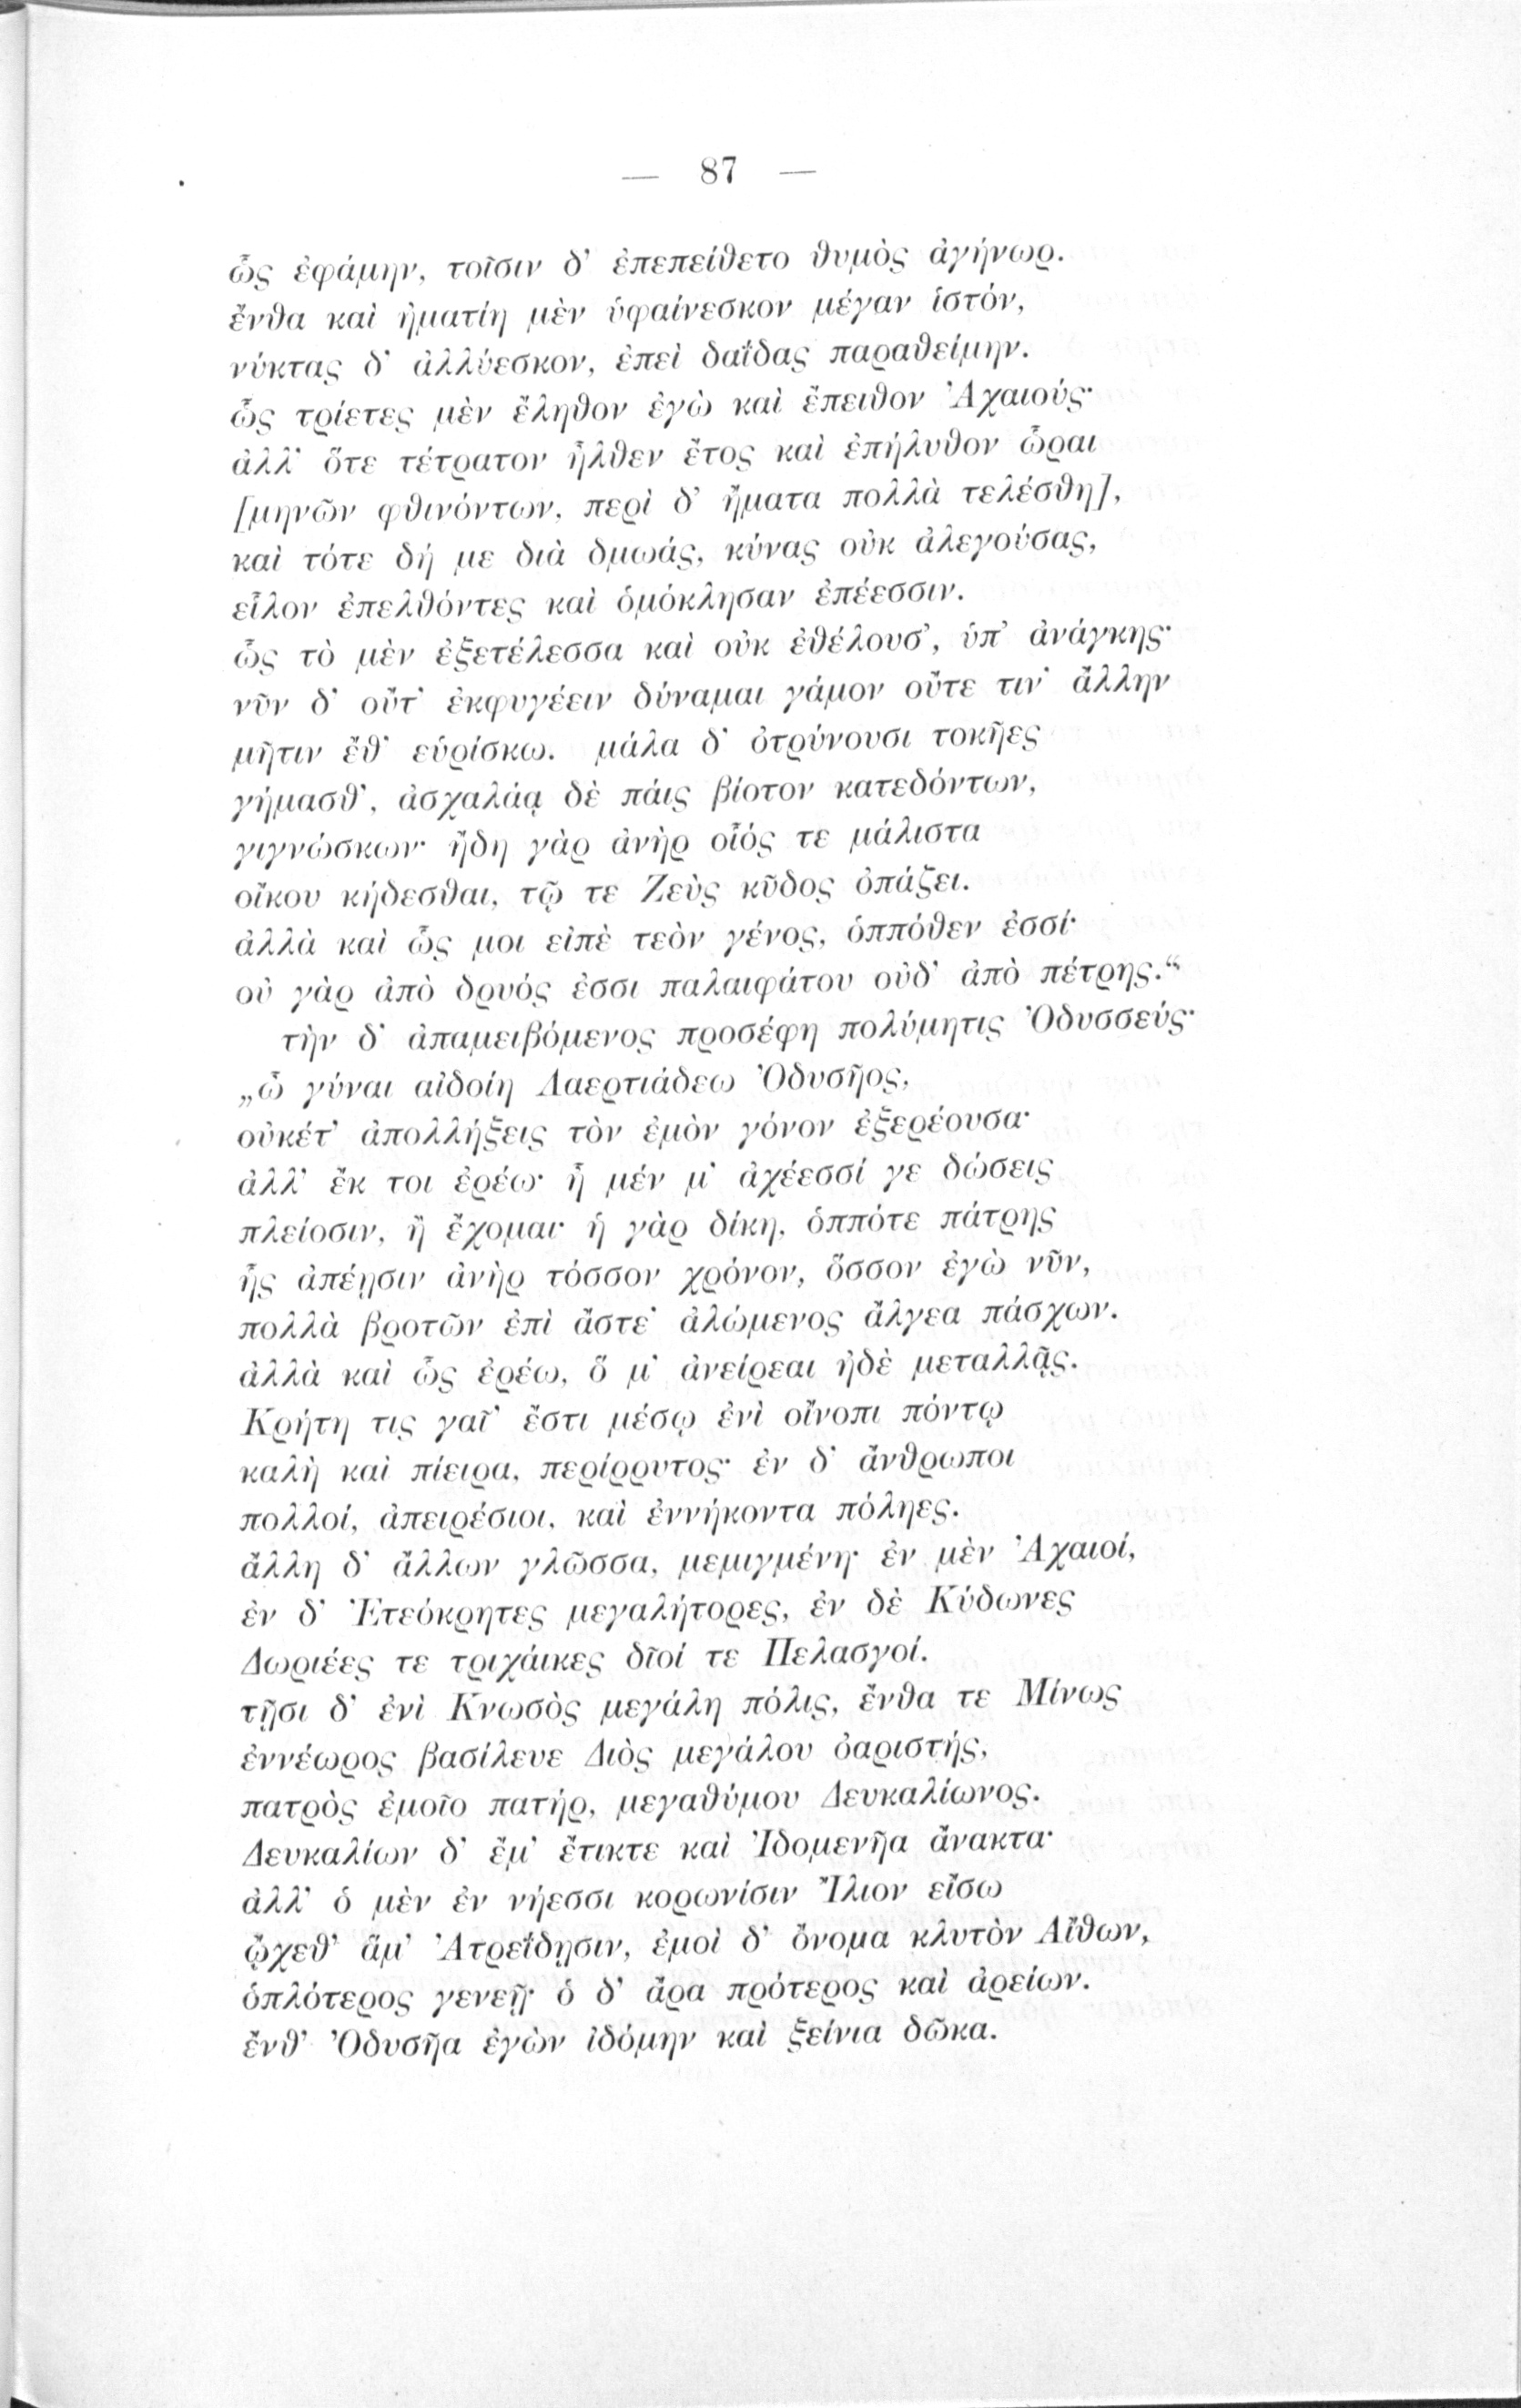 — 87 —
ὣς ἐφάμην, τοῖσιν δ' ἐπεπείθετο θυμὸς ἀγήνωρ.
ἔνθα καὶ ἠματίη μὲν ὑφαίνεσκον μέγαν ἱστόν,
νύκτας δ' ἀλλύεσκον, ἐπεὶ δαΐδας παραθείμην.
ὣς τρίετες μὲν ἔληθον ἐγὼ καὶ ἔπειθον Ἀχαιούς·
ἀλλ' ὅτε τέτρατον ἦλθεν ἔτος καὶ ἐπήλυθον ὧραι
[μηνῶν φθινόντων, περὶ δ' ἤματα πολλὰ τελέσθη],
καὶ τότε δή με διὰ δμωάς, κύνας οὐκ ἀλεγούσας,
εἷλον ἐπελθόντες καὶ ὁμόκλησαν ἐπέεσσιν.
ὣς τὸ μὲν ἐξετέλεσσα καὶ οὐκ ἐθέλουσ', ὑπ' ἀνάγκης·
νῦν δ' οὔτ' ἐκφυγέειν δύναμαι γάμον οὔτε τιν' ἄλλην
μῆτιν ἔθ' εὑρίσκω. μάλα δ' ὀτρύνουσι τοκῆες
γήμασθ', ἀσχαλάᾳ δὲ πάις βίοτον κατεδόντων,
γιγνώσκων· ἤδη γὰρ ἀνὴρ οἷός τε μάλιστα
οἴκου κήδεσθαι, τῷ τε Ζεὺς κῦδος ὀπάζει.
ἀλλὰ καὶ ὧς μοι εἰπὲ τεὸν γένος, ὁππόθεν ἐσσί·
οὐ γὰρ ἀπὸ δρυός ἐσσι παλαιφάτου οὐδ' ἀπὸ πέτρης.“
τὴν δ' ἀπαμειβόμενος προσέφη πολύμητις Ὀδυσσεύς·
„ὦ γύναι αἰδοίη Λαερτιάδεω Ὀδυσῆος,
οὐκέτ' ἀπολλήξεις τὸν ἐμὸν γόνον ἐξερέουσα·
ἀλλ' ἔκ τοι ἐρέω· ἦ μέν μ' ἀχέεσσί γε δώσεις
πλείοσιν, ἢ ἔχομαι· ἡ γὰρ δίκη, ὁππότε πάτρης
ἧς ἀπέῃσιν ἀνὴρ τόσσον χρόνον, ὅσσον ἐγὼ νῦν,
πολλὰ βροτῶν ἐπὶ ἄστε' ἀλώμενος ἄλγεα πάσχων.
ἀλλὰ καὶ ὧς ἐρέω, ὅ μ' ἀνείρεαι ἠδὲ μεταλλᾷς.
Κρήτη τις γαῖ' ἔστι μέσῳ ἐνὶ οἴνοπι πόντῳ
καλὴ καὶ πίειρα, περίρρυτος· ἐν δ' ἄνθρωποι
πολλοί, ἀπειρέσιοι, καὶ ἐννήκοντα πόληες.
ἄλλη δ' ἄλλων γλῶσσα, μεμιγμένη· ἐν μὲν Ἀχαιοί,
ἐν δ' Ἐτεόκρητες μεγαλήτορες, ἐν δὲ Κύδωνες
Δωριέες τε τριχάικες δῖοί τε Πελασγοί.
τῇσι δ' ἐνὶ Κνωσὸς μεγάλη πόλις, ἔνθα τε Μίνως
ἐννέωρος βασίλευε Διὸς μεγάλου ὀαριστής,
πατρὸς ἐμοῖο πατήρ, μεγαθύμου Δευκαλίωνος.
Δευκαλίων δ' ἔμ' ἔτικτε καὶ Ἰδομενῆα ἄνακτα·
ἀλλ' ὁ μὲν ἐν νήεσσι κορωνίσιν Ἴλιον εἴσω
ᾤχεθ' ἅμ' Ἀτρεΐδῃσιν, ἐμοὶ δ' ὄνομα κλυτὸν Αἴθων,
ὁπλότερος γενεῇ· ὁ δ' ἄρα πρότερος καὶ ἀρείων.
ἔνθ' Ὀδυσῆα ἐγὼν ἰδόμην καὶ ξείνια δῶκα.